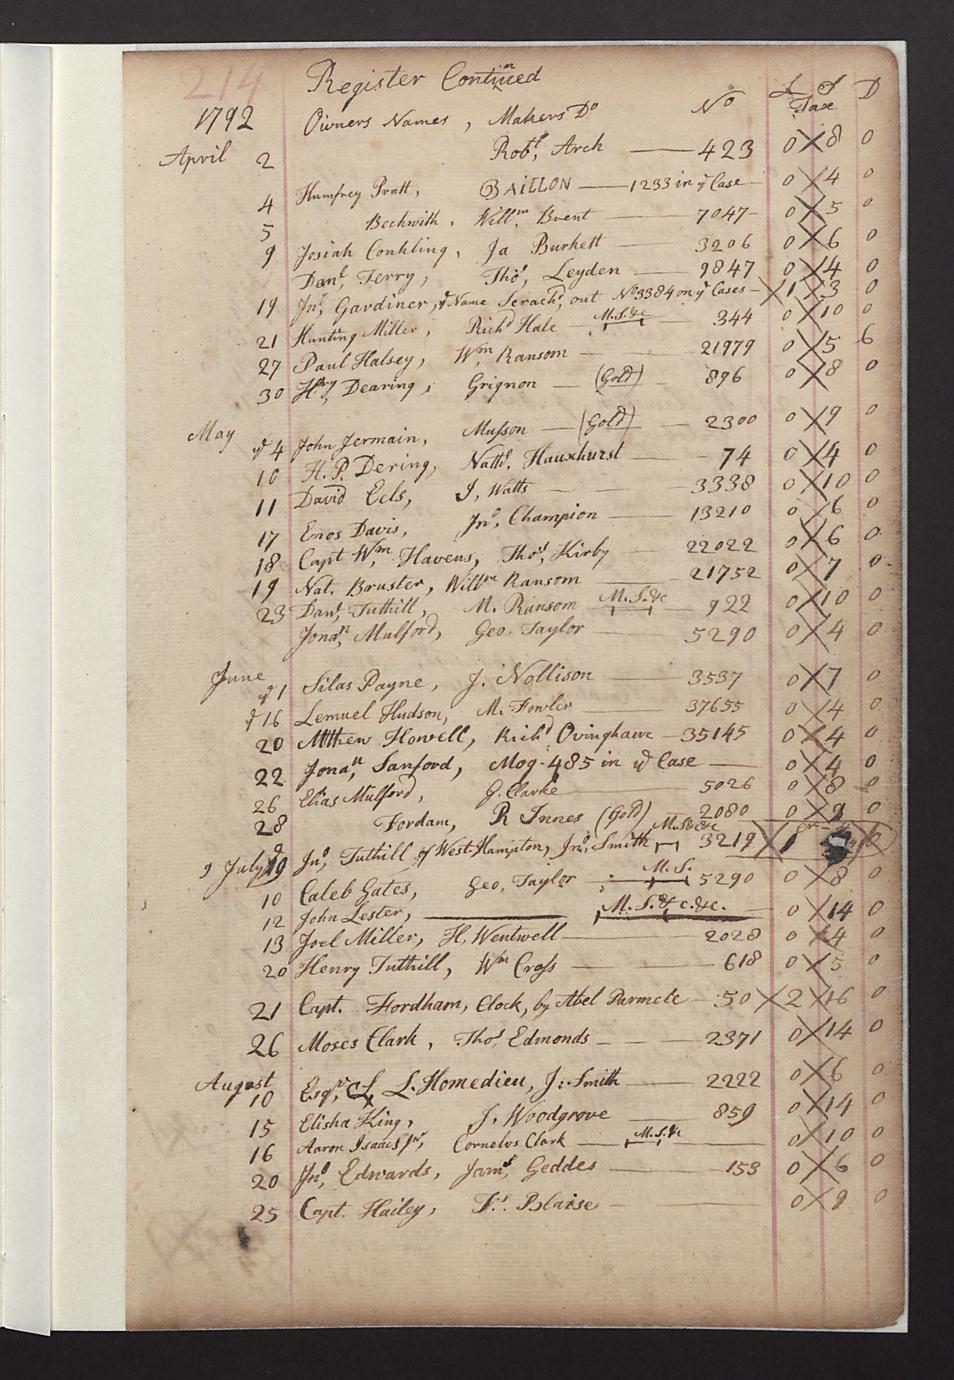 214 Register Contined
£ S D
1792 Owners Names, Makers Do No Tax
April 2 Robt, Arch 423 0 8 0
4 Humfrey Pratt, BAILLON 1233 in ye Case 0 4 0
5 Beckwith, Willm, Brent 7047 0 5 0
9 Josiah Conkling, Ja Burkett 3206 0 6 0
Danl, Terry, Thos, Leyden 9847 0 4 0
19 Jno, Gardiner, ye Name Scrachd, out No 3384 on ye Cases 1 3 0
21 Hunting Miller, Richd Hale M.S.&c 344 0 10 0
27 Paul Halsey, Wm, Ransom 21979 0 5 6
30 Hry, Dearing, Grignon (Gold) 896 0 8 0
May ye 4 John Jermain, Musson (Gold) 2300 0 9 0
10 H. P. Dering, Nathl, Hauxhurst 74 0 4 0
11 David Eels, J, Watts 3338 0 10 0
17 Enos Davis, Jno, Champion 13210 0 6 0
18 Capt Wm, Havens, Thos, Kirby 22022 0 6 0
19 Nat. Bruster, Willm Ransom 21752 0 7 0
23 Danl, Tuthill, M. Ransom M.S.&c 922 0 10 0
Jonan, Mulford, Geo. Taylor 5290 0 4 0
June ye 1 Silas Payne, J. Nollison 3537 0 7 0
ye 16 Lemuel Hudson, M. Fowler 37655 0 4 0
20 Mthew Howell, Richd Ovinghame 35145 0 4 0
22 Jonan, Sanford, Mog. 485 in ye Case 0 4 0
26 Elias Mulford, J. Clarke 5026 0 8 0
28 Fordam, R Innes (Gold) 2080 0 9 0
July 9 Jno, Tuthill of West Hampton, Jno, Smith M.S.&c 3219 1 0
10 Caleb Gates, Geo, Taylor M.S. 5290 0 8 0
12 John Lester, M.S.&c.&c. 0 14 0
13 Joel Miller, H, Wentwell 2028 0 4 0
20 Henry Tuthill, Wm Cross 618 0 5 0
21 Capt. Fordham, Clock, by Abel Parmele 50 2 16 0
26 Moses Clark, Thos, Edmonds 2371 0 14 0
August 10 Esqr, L. Homedieu, J. Smith 2222 0 6 0
15 Elisha King, J. Woodgrove 859 0 14 0
16 Aaron Isaacs Jnr, Cornelus Clark M.S.&c 0 10 0
20 Jno, Edwards, Jams, Geddes 153 0 6 0
25 Capt. Hailey, Fs. Blaise 0 9 0